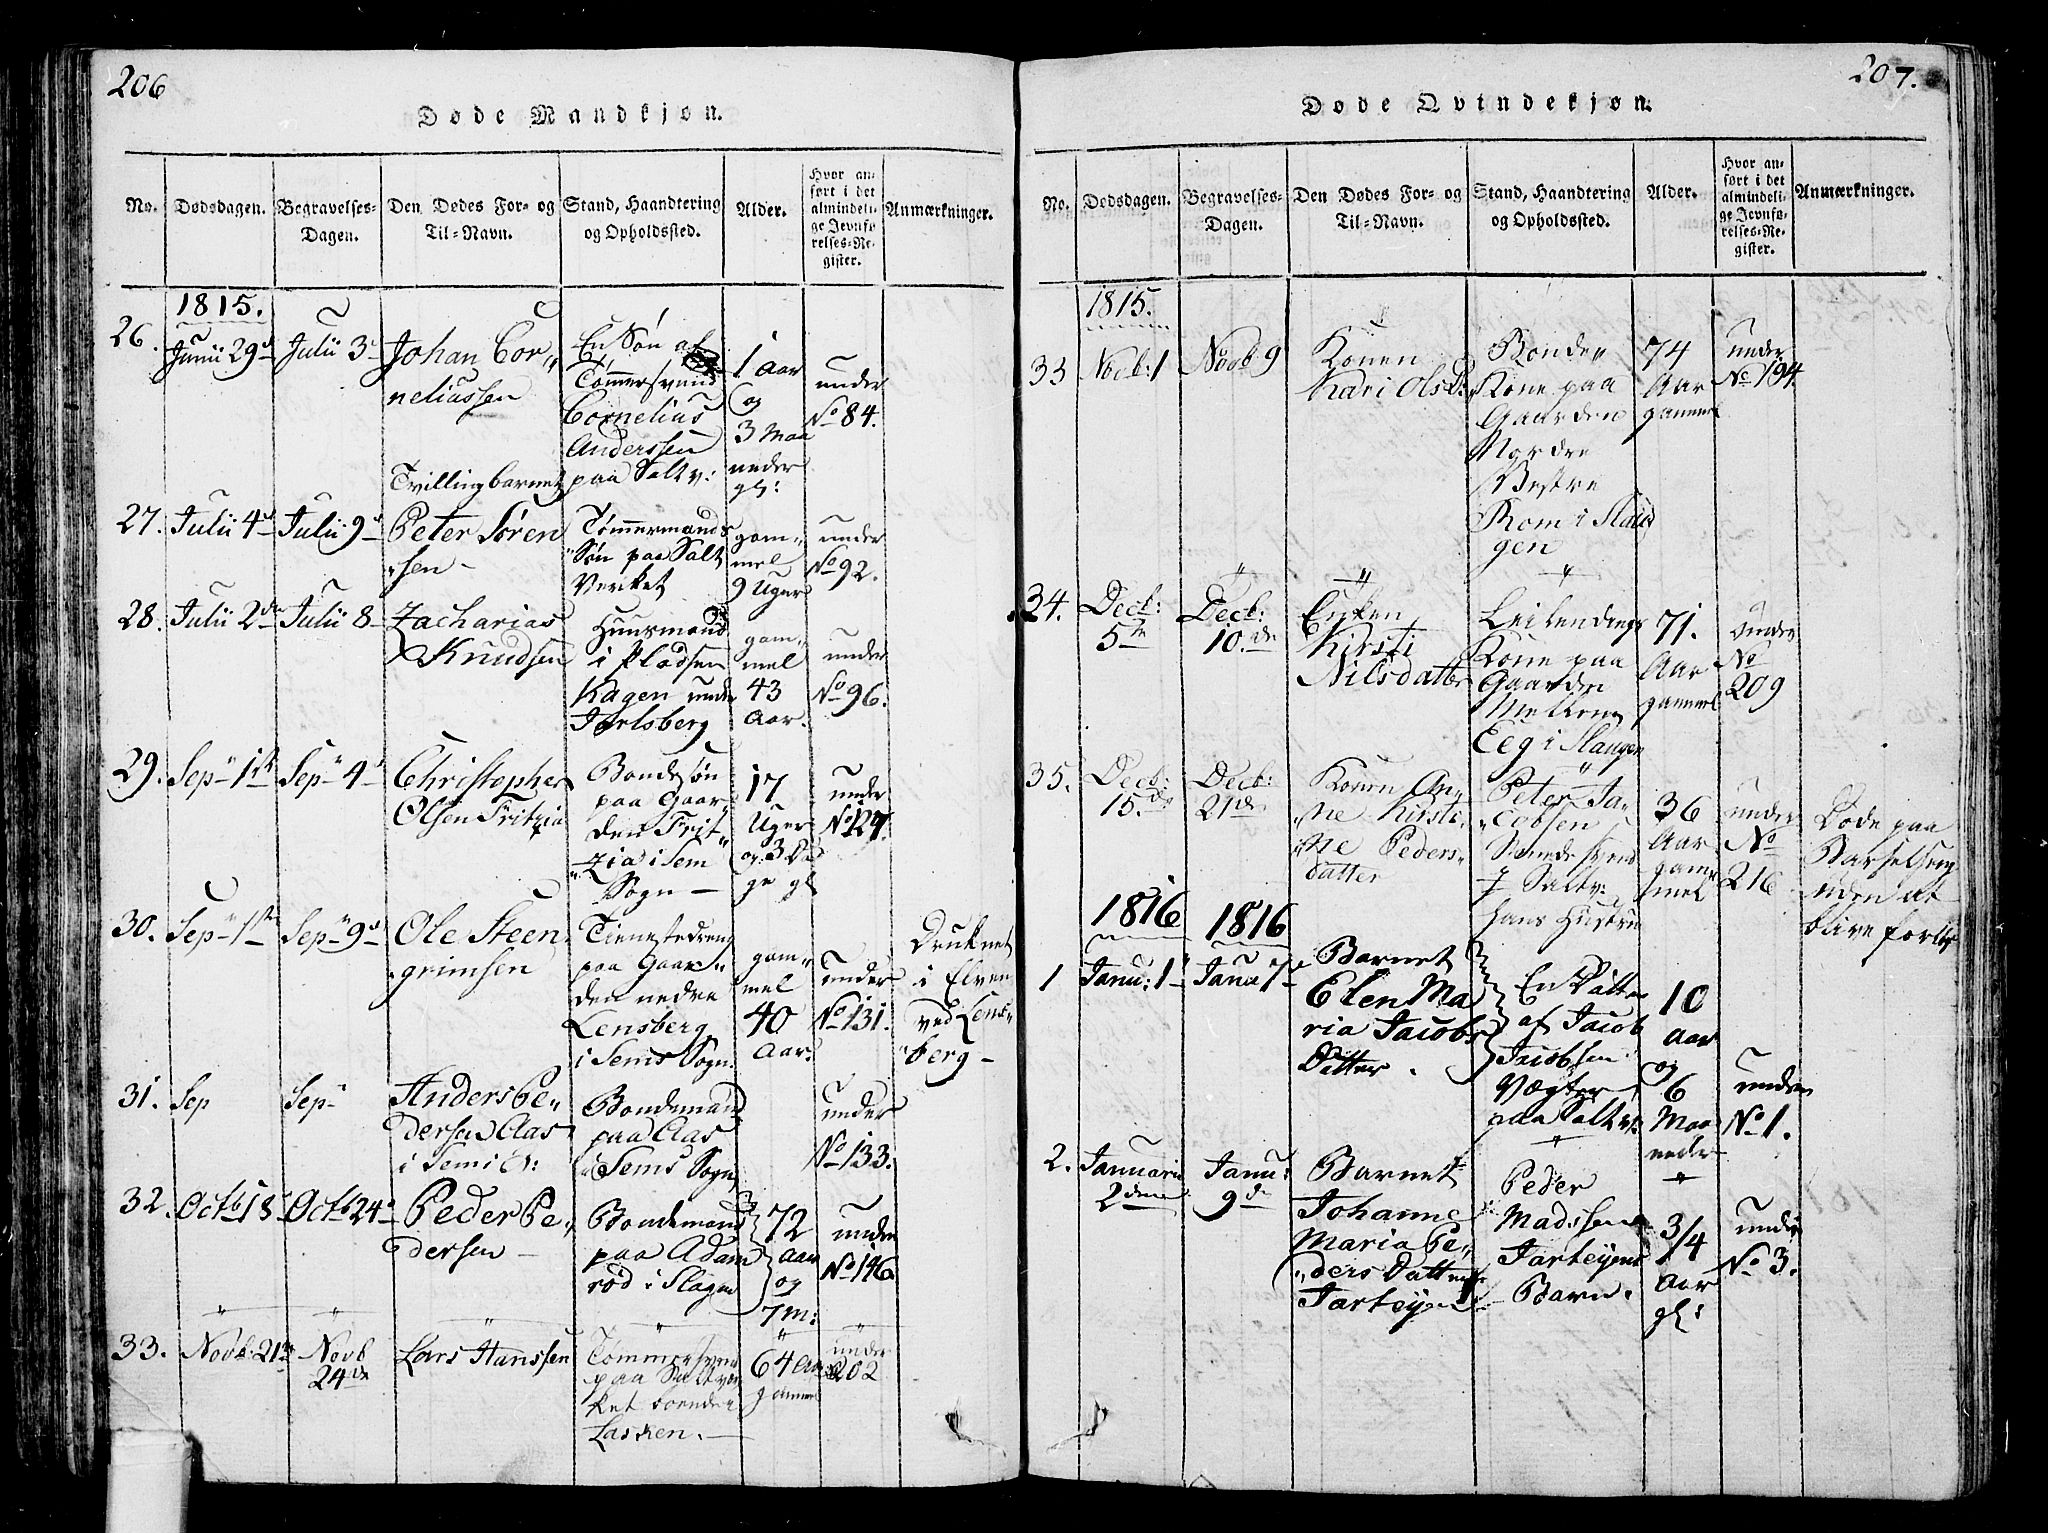 206
Døde Mandkjøn.
No.
Dødsdagen.
Begravelses-
Dagen.
Den Dødes For- og
Til-Navn.
Stand, Haandtering
og Opholdssted.
Alder.
Hvor an-
ført i det
almindeli-
ge Jevnfø-
relses-Re-
gister.
Anmærkninger.
1815.
26.
Junii 29d
Julii 3d
Johan Cor„
neliussen
Tvillingbarnet
En Søn af
Tømmersvend
Cornelius
Anderssen
paa Saltv:
1 Aar
og
3 Maa
neder
gl:
under
No 84.
27.
Julii 4d
Julii 9d
Peter Sören
„sen -
Tømmermands
Søn paa Salt
Verket
gam„
mel
9 Uger
under
No 92.
28.
Julii 2de
Julii 8
Zacharias
Knudsen
Huusmand
i Pladsen
Hagen under
Jarlsberg
gam„
mel
43
Aar.
under
No 96.
29.
Sep 1st
Sep 4d
Christopher
Olsen Fritzia
Bondesøn
paa Gaar
den Frit„
„zia i Sem
Sogn -
17
Uger
og 3 Da
ge gl
under
No 127.
30.
Sep 1st
Sep 9d
Ole Steen
„grimsen
Tienestedreng
paa Gaar„
den nedre
Lensberg
i Sems Sogn.
gam„
mel
40
Aar.
under
No 131.
Druknet
i Elven
ved Lens„
„berg -
31.
Sep
Sep
Anders Pe„
dersen Aas
i Sem
Bondeman
paa Aas
i Sems Sogn
under
No 133.
32.
Octb 18
Octb 24
Peder Pe„
dersen -
Bondemand
paa Adam
rød i Slagen
72
Aar
og
7 m:
under
No 146.
33.
Novb: 21de
Novb
24de
Lars Hanssen
Tømmersven
paa Saltvær
ket boende i
Lasken. -
64 Aar
gammel
under
202
207.
Døde Qvindekjøn.
No.
Dødsdagen.
Begravelses-
Dagen.
Den Dødes For- og
Til-Navn.
Stand, Haandtering
og Opholdssted.
Alder.
Hvor an-
ført i det
almindeli-
ge Jevnfø-
relses-Re-
gister.
Anmærkninger.
1815.
33
Novb: 1
Novb 9
Konen
Kari Olsd:
Bonde„
Kone paa
Gaarden
Nordre
Vestre
Rom i Slau
gen
74
Aar
gammel
under
No 194.
34.
Decb:
5te
Decb:
10.de
Enken
Kirsti
Nilsdatter
Leilendings
Kone paa
Gaarden
Mellem
Eeg i Slaugen
71.
Aar
gammel
under
No
209
35.
Decb:
15.de
Decb:
21de
Konen An„
„ne Kirsti„
„ne Peders„
datter
Peter Ja„
„cobsen
Saltv:
hans Hustru
36
Aar
gam„
mel
under
No
216
Døde paa
Barselseng
uden at
blive forløst
1816
1816
1
Janu: 1
Janu 7
Barnet
Elen Ma
ria Jacobs
Datter.
En Datter
af Jacob
Jacobsen
Vægter
paa Saltv:
10
Aar
og
6
Maa
neder
under
No 1.
2.
Januarii
2den
Janu:
9de
Barnet
Johanne
Maria Pe„
„ders Datter
Jarteyen
Peder
Madssen
Jarteyens
Barn.
3/4
Aar
gl:
under
No 3.